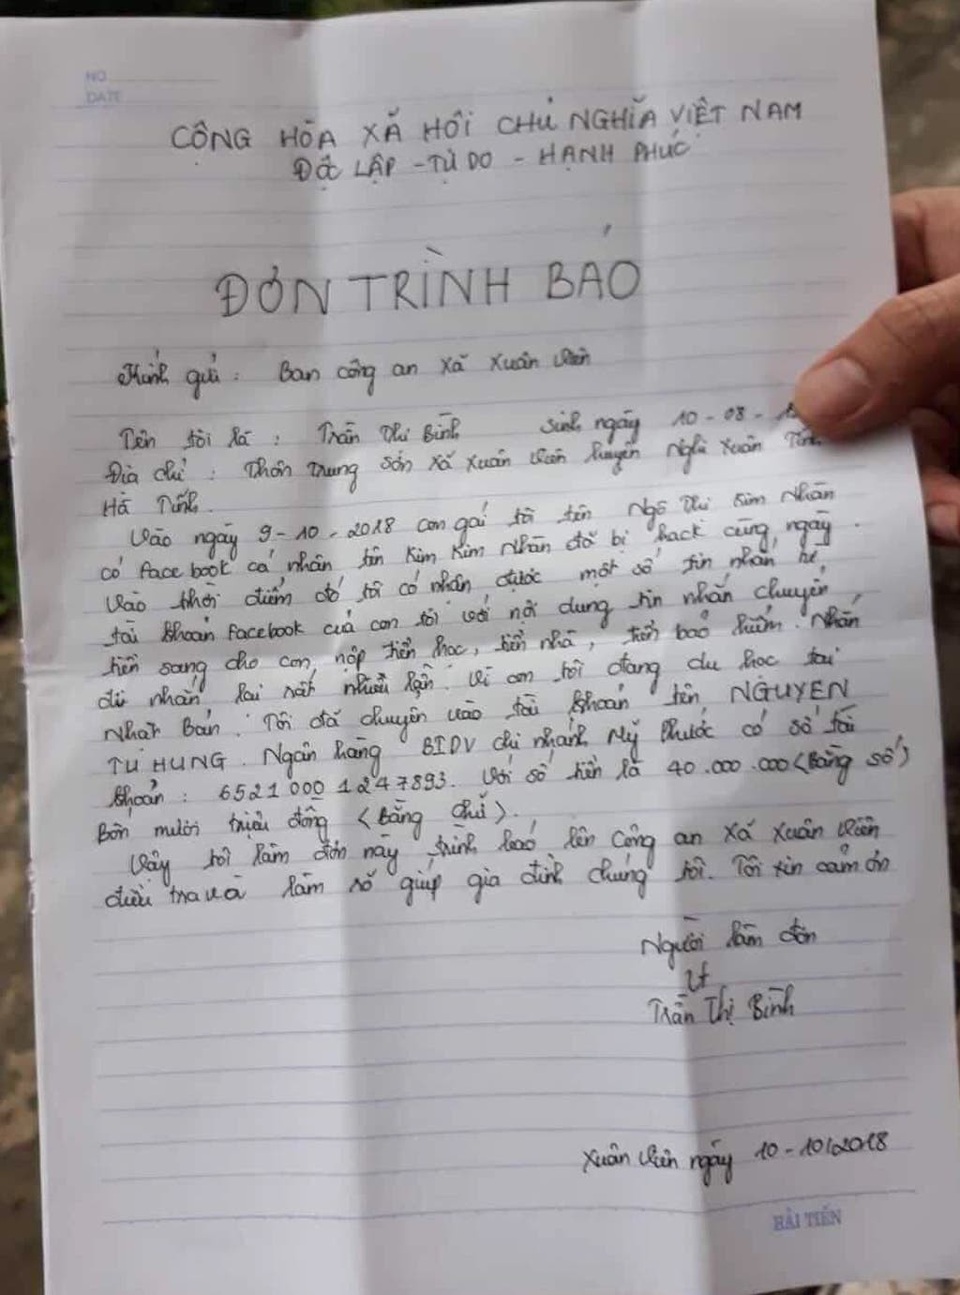 NO
DATE
CỘNG HÒA XÃ HÔI CHỦ NGHĨA VIỆT NAM
ĐỘC LẬP - TỰ DO - HẠNH PHÚC
ĐƠN TRÌNH BÁO
Kính gửi : Ban công an xã Xuân Viên
Tên tôi là : Trần Thi Bình sinh ngày 10 - 08 -
Địa chỉ : Thôn Trung Sơn xã Xuân Viên huyện Nghi Xuân Tỉnh
Hà Tĩnh.
Vào ngày 9-10-2018 con gái tôi tên Ngô Thi Kim Nhàn
có facebook cá nhân tên Kim Kim Nhàn đã bị hack cùng ngày.
Vào thời điểm đó tôi có nhận được một số tin nhắn từ
tài khoản facebook của con tôi với nội dung tin nhắn chuyển
tiền sang cho con, nộp tiền học, tiền nhà, tiền bảo hiểm. Nhắn
đi nhắn lại rất nhiều lần. Vì con tôi đang du học tại
Nhật Bản. Tôi đã chuyển vào tài khoản tên NGUYEN
TU HUNG. Ngân hàng BIDV chi nhánh Mỹ Phước có số tài
khoản : 6521 000 1247893. Với số tiền là 40.000.000 (Bằng số)
Bốn mười triệu đồng (Bằng chữ).
Vậy tôi làm đơn này trình báo lên Công an xã Xuân Viên
điều tra và làm rõ giúp gia đình chúng tôi. Tôi xin cảm ơn
Người làm đơn
Trần Thị Bình
Xuân Viên ngày 10-10/2018
HẢI TIẾN